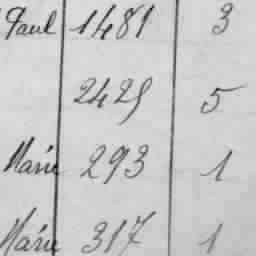 Paul 1481 3
2429 5
Marie 293 1
Marie 317 1